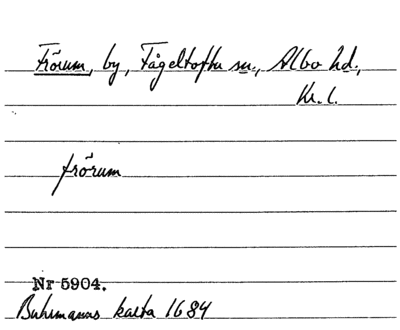 Frörum, by, Fågeltofta sn., Albo hd.,
Kr. l.
frőrum
Nr 5904.
Buhrmanns karta 1684